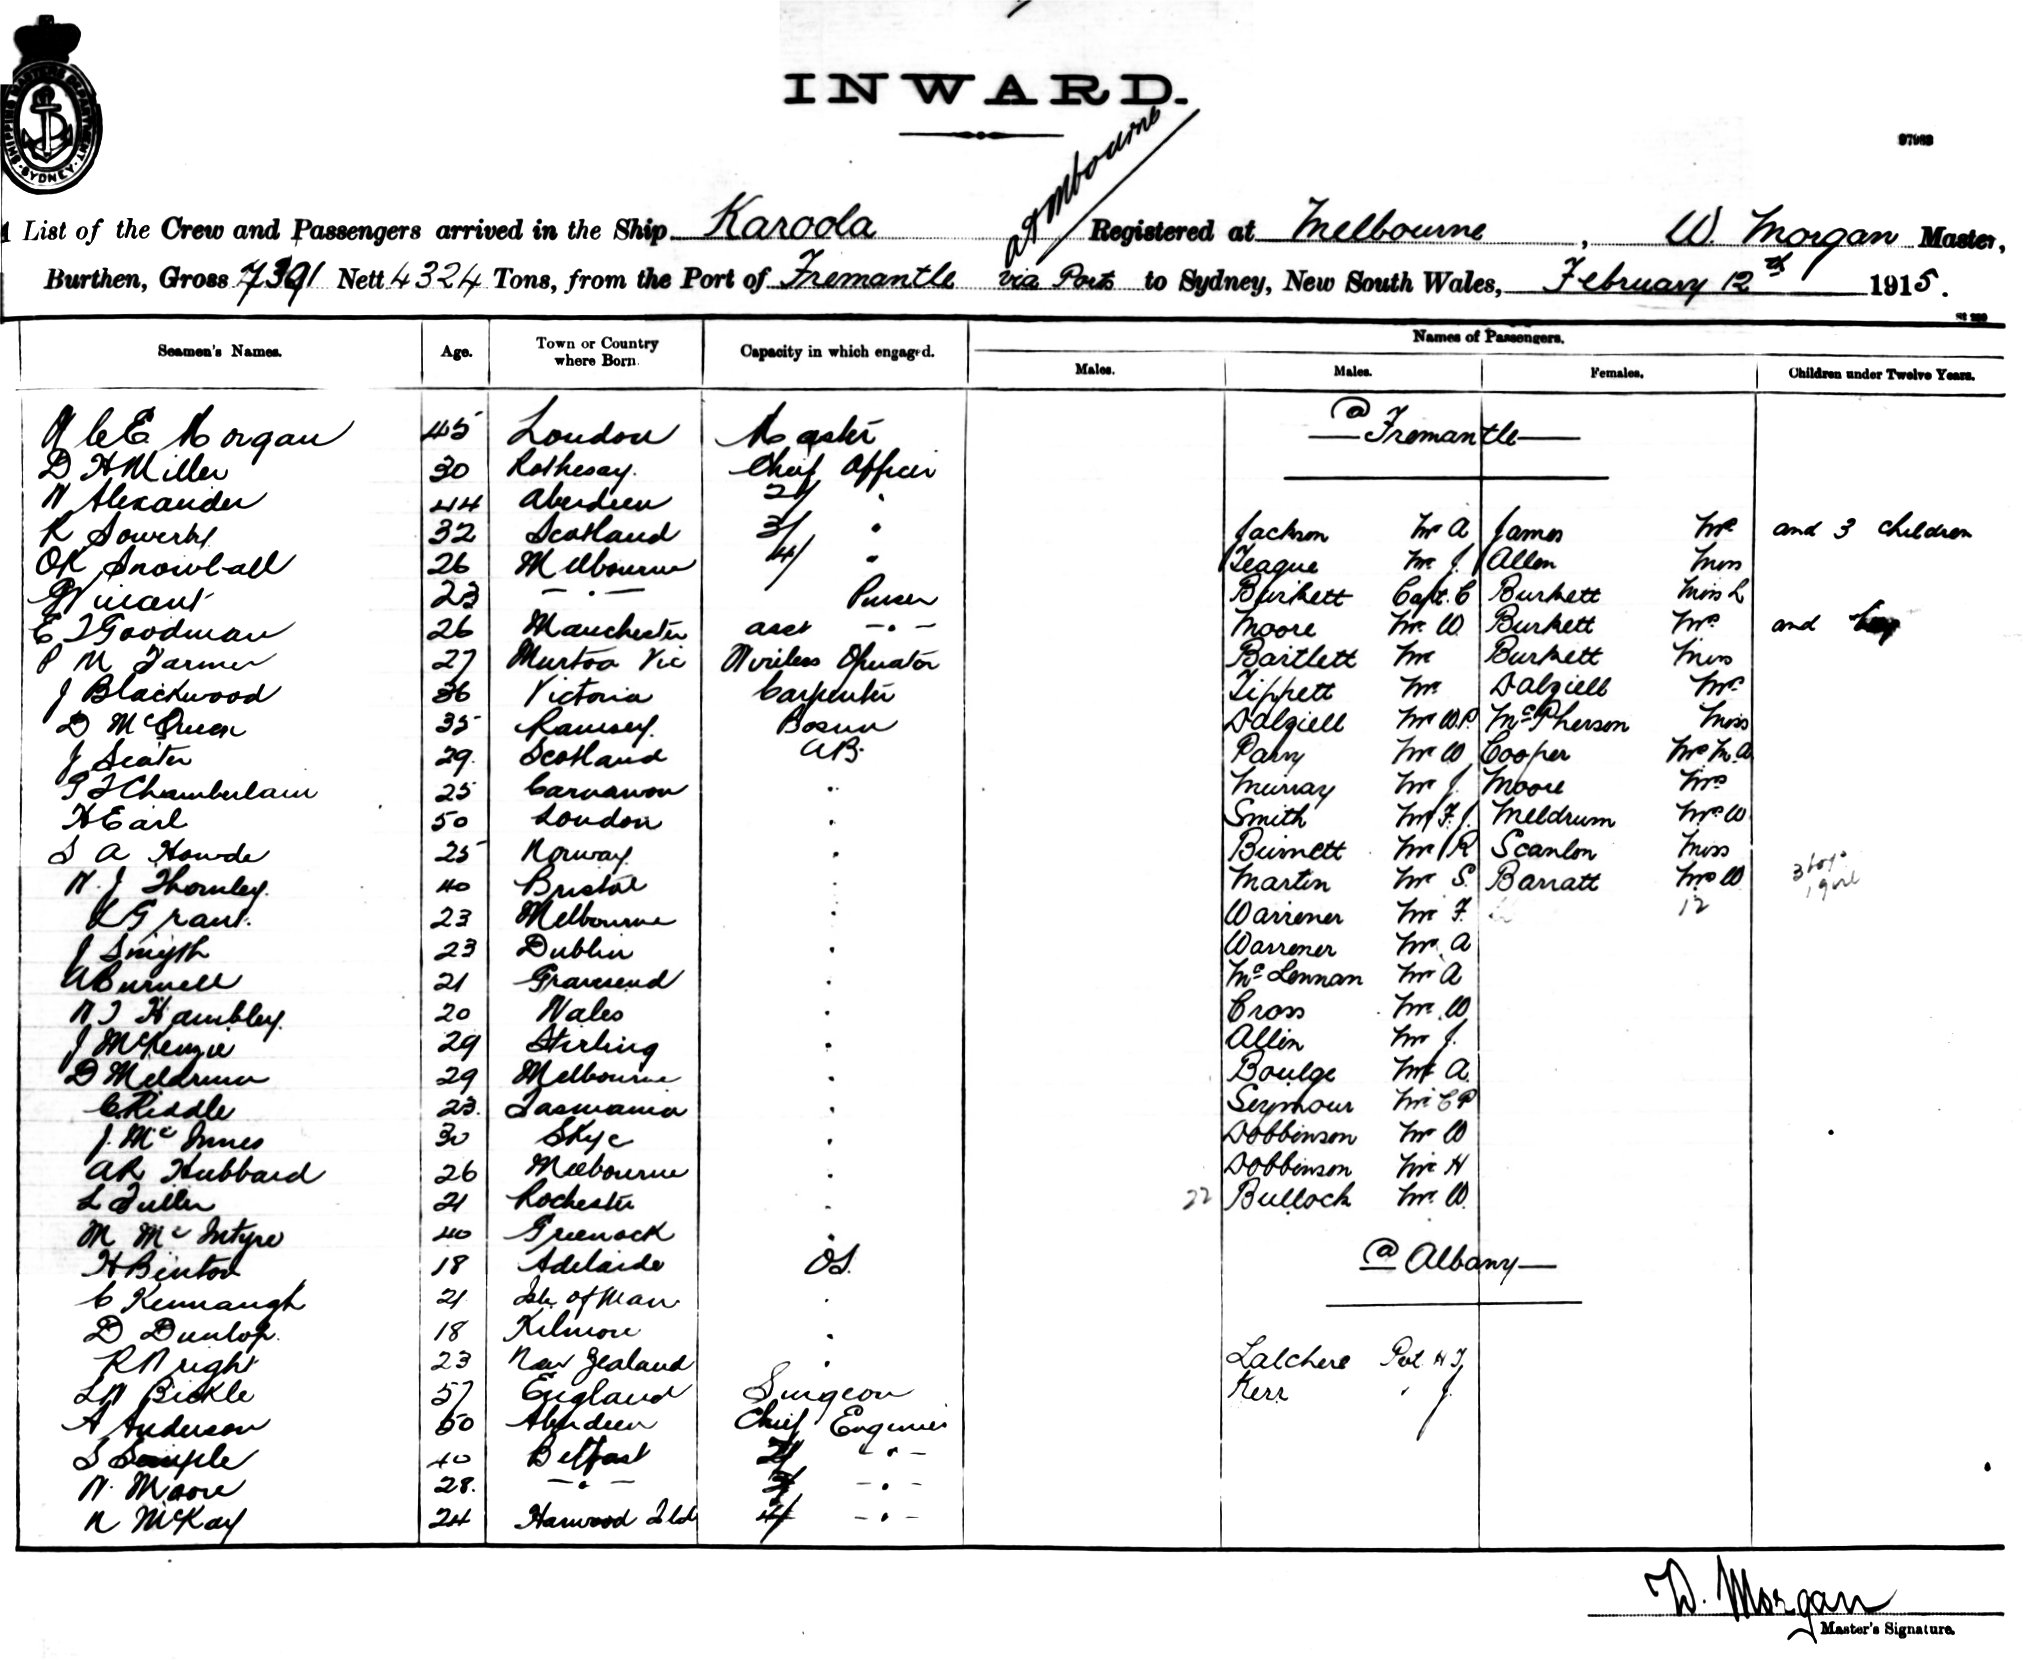 SHIPPING MASTER'S DEPARTMENT SYDNEY
INWARD.
97963
at Melbourne
List of the Crew and Passengers arrived in the Ship Karoola Registered at Melbourne, W. Morgan Master,
Burthen, Gross 7391 Nett 4324 Tons, from the Port of Fremantle via Ports to Sydney, New South Wales, February 12th 1915.
Names of Passengers.
Seamen's Names. Age. Town or Country where Born. Capacity in which engaged. Males. Males. Females. Children under Twelve Years.
@ Fremantle
W C E Morgan 45 London Master
D H Miller 30 Rothesay. Chief Officer
W Alexander 44 Aberdeen 2/ "
R Sowerby 32 Scotland 3/ " Jackson Mr A James Mrs and 3 children
OR Snowball 26 Melbourne 4/ " Teague Mr J. Allen Miss
G Vincent 23 — " — Purser Burkett Capt. C Burkett Miss L
E J Goodman 26 Manchester asst — " — Moore Mr W. Burkett Mrs and
P M Farmer 27 Murtoa Vic Wireless Operator Bartlett Mr Burkett Miss
J Blackwood 36 Victoria Carpenter Tippett Mr Dalziell Mrs
D McQueen 35 Ramsey. Bosun Dalziell Mr W.P. McPherson Miss
J Seater 29. Scotland AB. Parry Mr W Cooper Mrs M.A
Chamberlain 25 Carnarvon " Murray Mr J. Moore Mrs
H Earl 50 London " Smith Mr F.J. Meldrum Mrs W
S A Howde 25 Norway. " Burnett Mr R Scanlon Miss
W. J Thornley. 40 Bristol " Martin Mr S. Barratt Mrs W 3 boys 1 girl
Grant. 23 Melbourne " Warrener Mr F. 12
J Smyth 23 Dublin " Warrener Mr A
A Burnell 21 Gravesend " McLennan Mr A
W J Hambley. 20 Wales " Cross Mr W
J McKenzie 29 Stirling " Allen Mr J.
D Meldrum 29 Melbourne " Boulge Mr A.
C Riddle 23. Tasmania " Seymour Mr C P
J. McInnes 30 Skye " Dobbinson Mr W
AR Hubbard 26 Melbourne " Dobbinson Mr H
L Fuller 21 Rochester " 22 Bullock Mr. W.
M McIntyre 40 Greenock "
H Binton 18 Adelaide OS. @ Albany
C Kennaugh 21 Isle of Man "
D Dunlop. 18 Kilmore "
R Wright 23 New Zealand " Lalchere H J
L W Bickle 57 England Surgeon Kerr " J.
A Anderson 50 Aberdeen Chief Engineer
S Semple 40 Belfast 2/ — " —
W. Moore 28. — " — 3/ — " —
McKay 24 Harwood 4/ — " —
W. Morgan
Master's Signature.